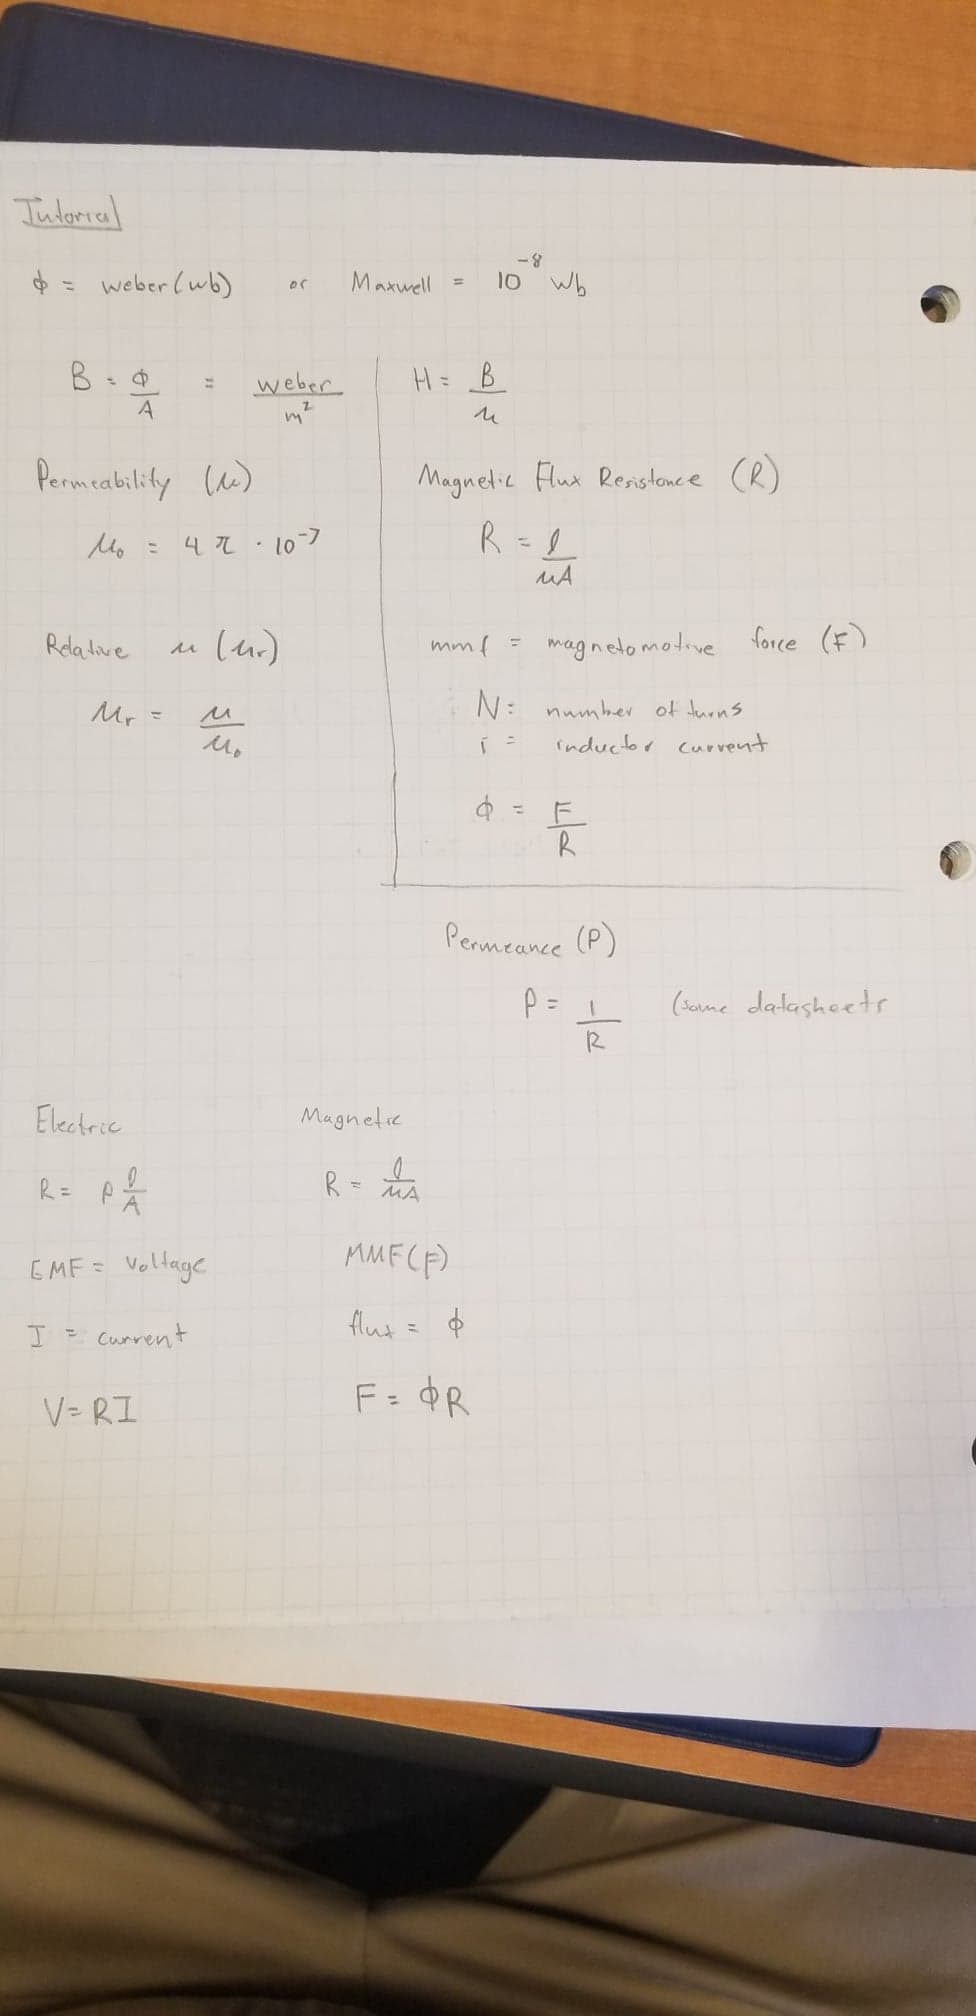 Tutorial
ϕ = weber (wb) or Maxwell = 10⁻⁸ Wb
B = ϕ/A = weber/m²
Permeability (μ)
μ₀ = 4π · 10⁻⁷
Relative μ (μr)
μr = μ/μ₀
H = B/μ
Magnetic Flux Resistance (R)
R = l/μA
mmf = magnetomotive force (F)
N = number of turns
i = inductor current
ϕ = F/R
Permeance (P)
P = 1/R (some datasheets
Electric
R = ρ l/A
EMF = Voltage
I = current
V = RI
Magnetic
R = l/μA
MMF (F)
flux = ϕ
F = ϕR